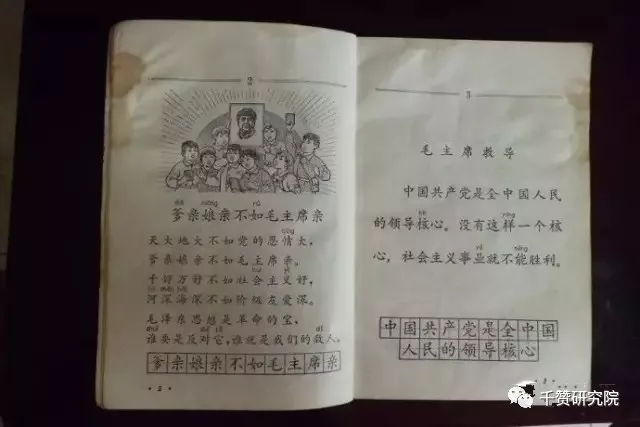 2
爹亲娘亲不如毛主席亲
天大地大不如党的恩情大，
爹亲娘亲不如毛主席亲。
千好万好不如社会主义好，
河深海深不如阶级友爱深。
毛泽东思想是革命的宝，
谁要是反对它，谁就是我们的敌人。
爹亲娘亲不如毛主席亲
· 2 ·
3
毛主席教导
中国共产党是全中国人民
的领导核心。没有这样一个核
心，社会主义事业就不能胜利。
中国共产党是全中国
人民的领导核心
千赞研究院